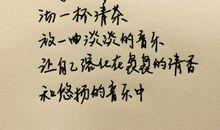 沏一杯清茶
放一曲淡淡的音乐
让自己溶化在袅袅的清香
和悠扬的音乐中